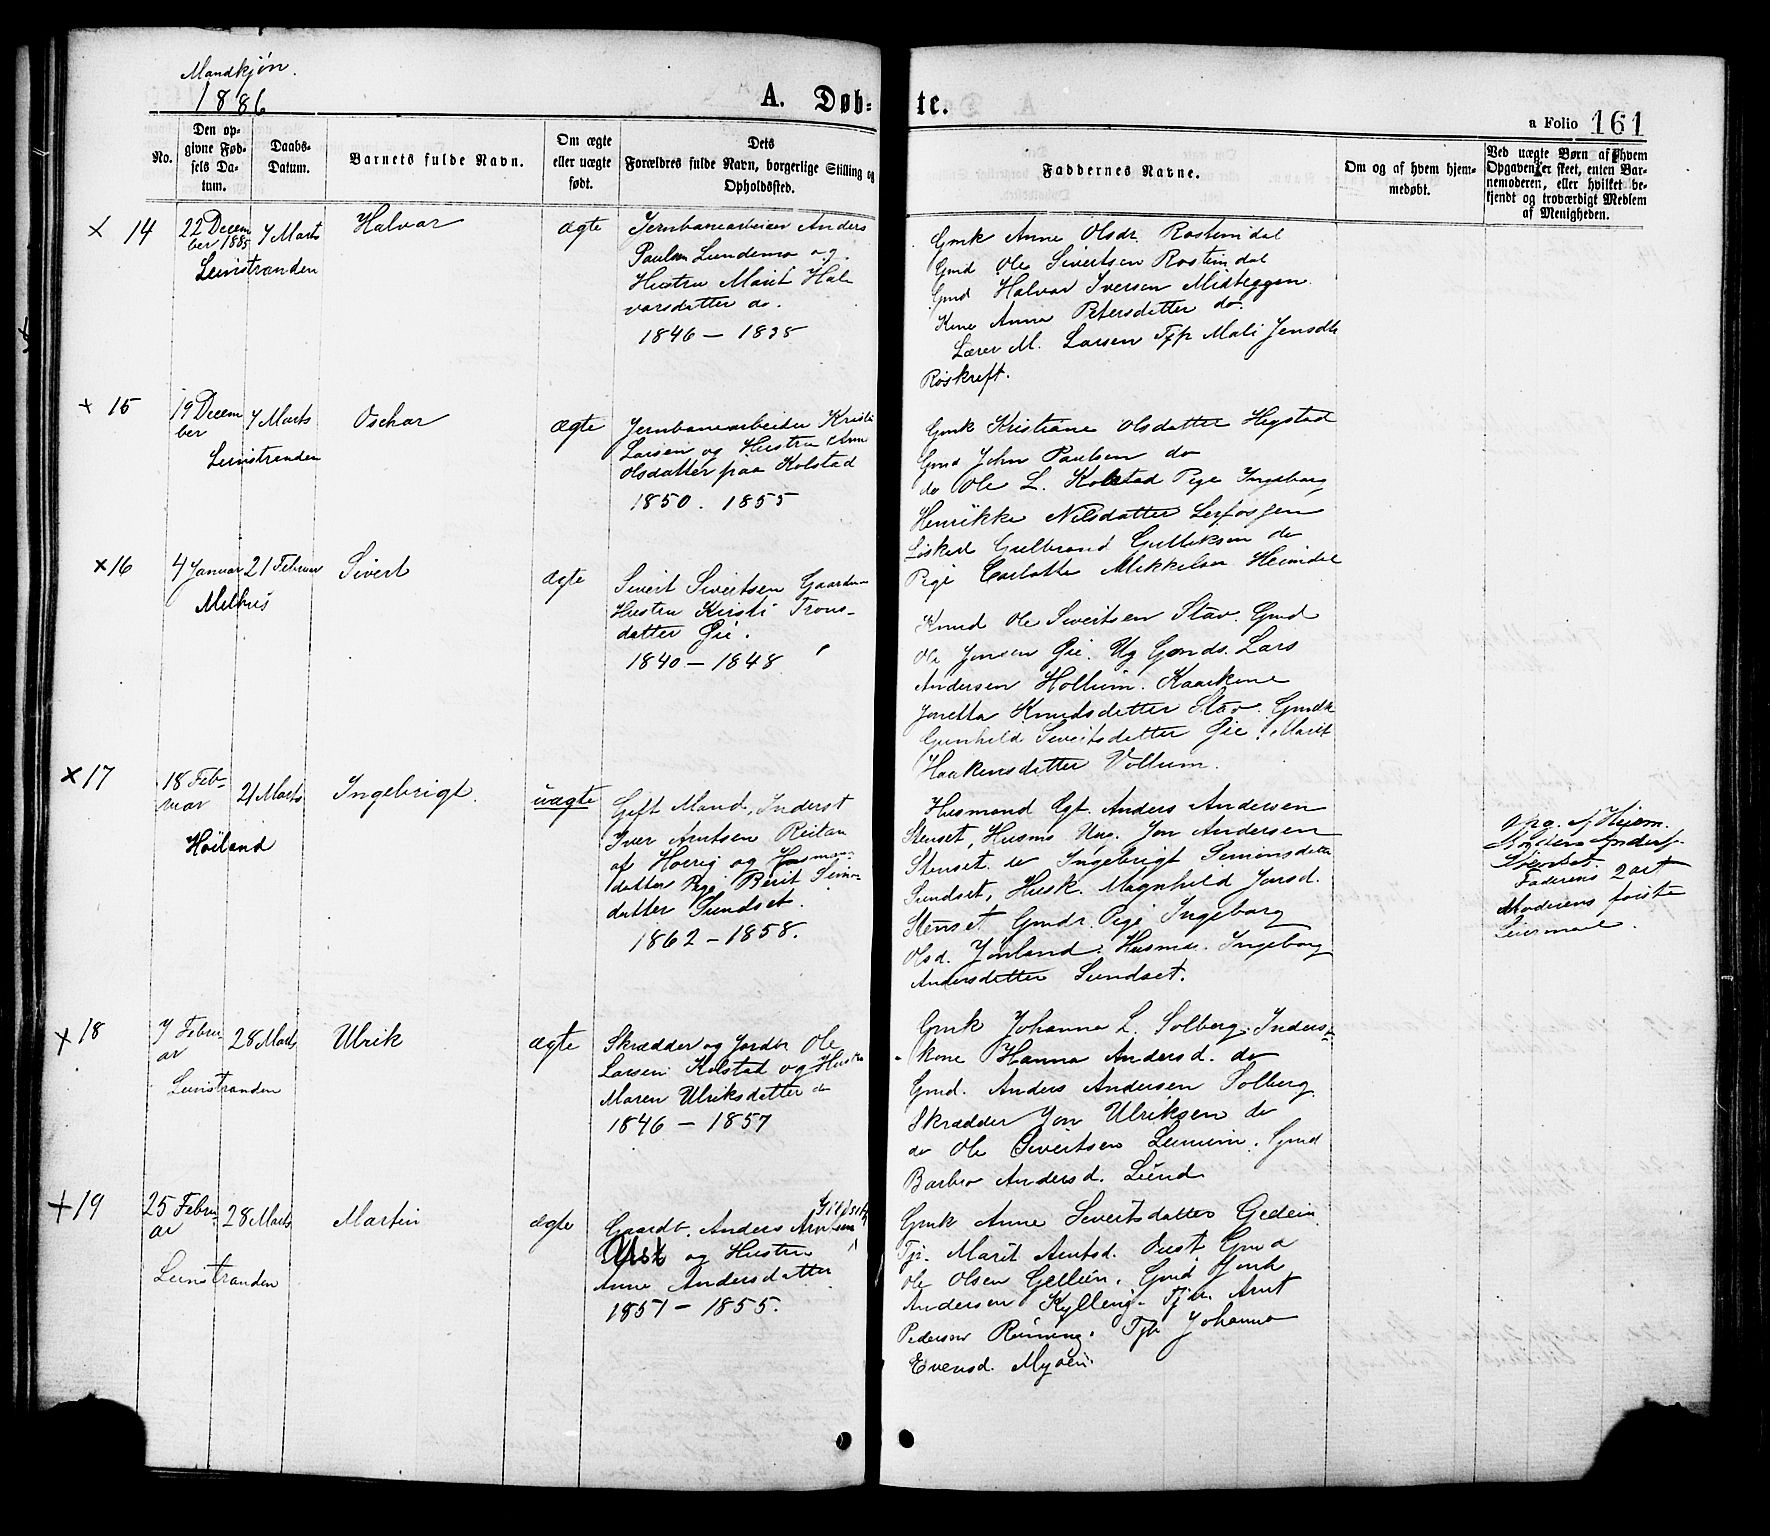 Mandkjøn.
1886
A. Døb-
te.
a Folio 161
No.
Den op-
givne Føb-
sels Da-
tum.
Daabs-
Datum.
Barnets fulde Navn.
Om ægte
eller uægte
født.
Dets
Forældres fulde Navn, borgerlige Stilling og
Opholdssted.
Faddernes Navne.
Om og af hvem hjem-
medøbt.
Ved uægte Børn af hvem
Opgaven er skeet, enten Bar-
nemoderen, eller hvilket be-
kjendt og troværdigt Medlem
af Menigheden.
x 14
22 Decem
ber 1885
7 Marts
Leinstranden
Halvar
ægte
Jernbanearbeider Anders
Paulsen Lundemo og
Hustru Marit Hal
varsdatter do.
1846 –
Gmk Anne Olsdr. Rostemdal
Gmd Ole Sivertsen Rostemdal
Gmd Halvar Iversen Midteggen
Kone Anne Petersdatter do.
Lærer M. Larsen Tjp Mali Jensdtr
Røskreft.
x 15
19 Decem
ber
7 Marts
Leinstranden
Oschar
ægte
Jernbanearbeider Kristi
Larsen og Hustru Ann
Olsdatter paa Kolstad
1850. 1855
Gmk Kristiane Olsdatter Hegstad
Gmd John Paulsen do
do Ole L. Kolstad Pige Ingeborg
Henrikke Nilsdatter Lerfossen
Gulbrand Gulliksen do
Pige Carlotte Mikkelsen Heimdal
x 16
4 Januar
21 Februar
Melhus
Sivert
ægte
Sivert Sivertsen Gaardm
Hustru Kristi Trons-
datter Øie.
1840 – 1848
Knud Ole Sivertsen Stav. Gmd
Ole Jonsen Øie. Ug Gmds. Lars
Andersen Hollum. Kaarkone
Joretta Knudsdatter Stav. Gmdk
Gunhild Sivertsdatter Øie. Marit
Haakensdatter Vollum.
x 17
18 Feb-
ruar
21 Marts
Høiland
Ingebrigt.
uægte
Gift Mand, Inderst
Iver Arntsen Reitan
af Horrig og
datter Pige Berit Simo-
datter Sundset.
1862 – 1858.
Husmand Ggt. Anders Andersen
Stenset, Husms Ung. Jon Andersen
Stenset. do Ingebrigt Simonsdatter
Sundset, Husk. Magnhild Jonsd.
Stenset Gmdr. Pige Ingeborg
Olsd. Jonland. Husmdr. Ingeborg
Andersdatter Sundset.
Faderens 2det
Moderens første
Leiermaal.
x 18
7 Febru-
ar
28 Marts
Leinstranden
Ulrik
ægte
Skrædder og Jordbr. Ole
Larsen Kolstad og Hustru
Maren Ulriksdatter do
1846 – 1857
Gmk Johanna L. Solberg. Inderst-
kone Hanna Andersd. do
Gmd. Anders Andersen Solberg.
Skrædder Jon Ulriksen do
do Ole Sivertsen Leinum. Gmd
Barbro Andersd. Lund
x 19
25 Febru-
ar
28 Marts
Leinstranden
Martin
ægte
Gaardb. Anders Arntsen
og Hustru
Anne Andersdatter
1851 – 1855.
Gmk Anne Sivertsdatter Gellein
Tjp. Marit Arntsd. Øust Gmd
Ole Olsen Gellein. Gmd
Andersen Kylling. Tjdr. Arnt
Pedersen Rønning. Tjp Johanna
Evensd. Myøen.